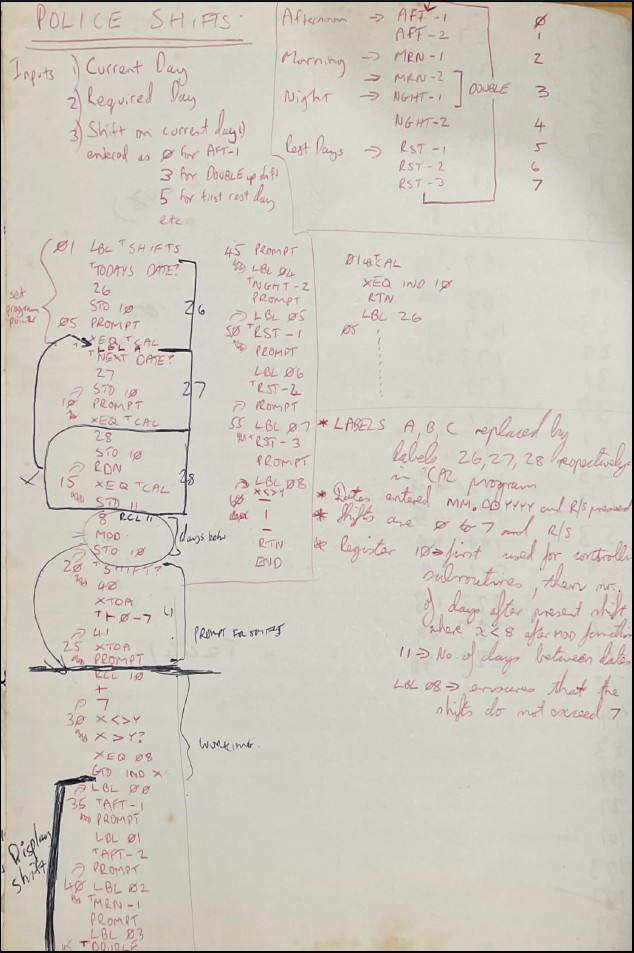 POLICE SHIFTS.
Inputs 1) Current Day
2) Required Day
3) Shift on current day
entered as Ø for AFT-1
3 for DOUBLE up shift
5 for first rest day
etc
Afternoon → AFT-1 Ø
AFT-2 1
Morning → MRN-1 2
→ MRN-2
DOUBLE 3
Night → NGHT-1
NGHT-2 4
Rest Days → RST-1 5
RST-2 6
RST-3 7
set
program
pointer
Ø1 LBL ᵀSHIFTS
ᵀTODAYS DATE?
26
STO 1Ø
Ø5 PROMPT
XEQ ᵀCAL
26
LBL A
ᵀNEXT DATE?
27
STO 1Ø
1Ø PROMPT
XEQ ᵀCAL
27
28
STO 1Ø
RDN
15 XEQ ᵀCAL
STO 11
28
X
8 RCL 11
MOD
STO 1Ø
days betw
2Ø ᵀSHIFT?
4Ø
XTOA
ᵀ⊢Ø-7
41
25 XTOA
PROMPT
PROMPT FOR SHIFTS
RCL 1Ø
+
7
3Ø X<>Y
X>Y?
XEQ Ø8
GTO IND X
WORKING.
Display
shift
LBL ØØ
35 ᵀAFT-1
PROMPT
LBL Ø1
ᵀAFT-2
PROMPT
4Ø LBL Ø2
ᵀMRN-1
PROMPT
LBL Ø3
ᵀDOUBLE
45 PROMPT
LBL Ø4
ᵀNGHT-2
PROMPT
LBL Ø5
5Ø ᵀRST-1
PROMPT
LBL Ø6
ᵀRST-2
PROMPT
55 LBL Ø7
ᵀRST-3
PROMPT
LBL Ø8
X<>Y
6Ø –
1
–
RTN
END
Ø1 LBL ᵀCAL
XEQ IND 1Ø
RTN
LBL 26
Ø5
* LABELS A, B, C replaced by
labels 26, 27, 28 respectively
in ᵀCAL program
* Dates entered MM.DDYYYY and R/S pressed
* Shifts are Ø to 7 and R/S
* Register 1Ø → first used for controlling
subroutines, then no.
of days after present shift
where x<8 after MOD function
11 → No. of days between dates
LBL Ø8 → ensures that the
shifts do not exceed 7